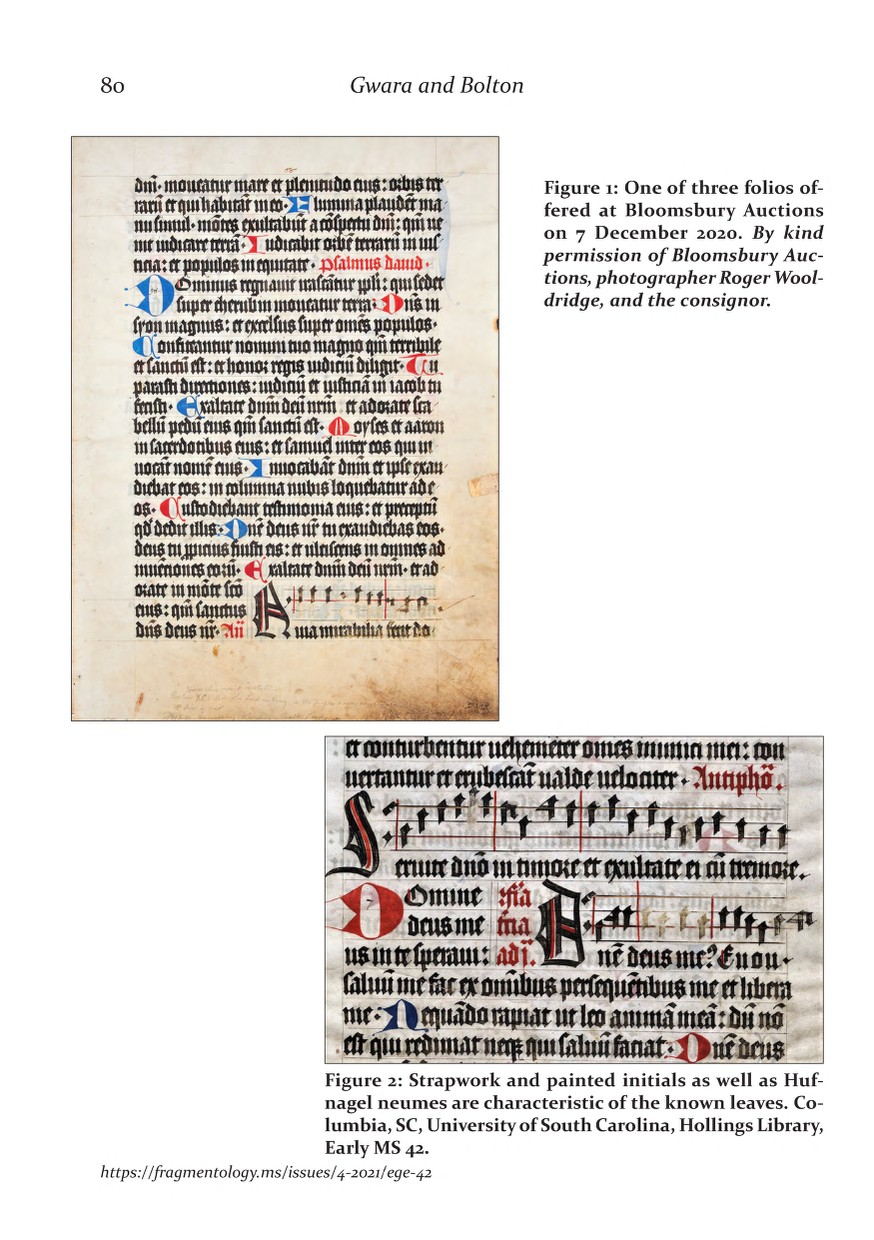 80
Gwara and Bolton
dñi· moueatur mare et plenitudo eius: orbis ter
rarū et qui habitāt in eo· Flumina plaudēt ma
nu simul· mōtes exultabūt a cōspectu dñi: qm̄ ue
nit iudicare terrā· Iudicabit orbē terrarū in ius
ticia: et populos in equitate· psalmus dauid·
Dominus regnauit irascātur ppli: qui sedet
super cherubin moueatur terra· Dñs in
syon magnus: et excelsus super omēs populos·
Confiteantur nomini tuo magno qm̄ terribile
et sanctū est: et honor regis iudiciū diligit· Tu
parasti directiones: iudiciū et iusticiā in iacob tu
fecisti· Exaltate dnm̄ deū nrm̄ et adorate sca
bellū pedū eius qm̄ sanctū est· Moyses et aaron
in sacerdotibus eius: et samuel inter eos qui in
uocāt nomē eius· Inuocabāt dnm̄ et ipse exau
diebat eos: in columna nubis loquebatur ad e
os· Custodiebant testimonia eius: et preceptū
qd̄ dedit illis· Dñe deus nr̄ tu exaudiebas eos·
deus tu ppicius fuisti eis: et ulciscens in omnes ad
inuētiones eorū· Exaltate dnm̄ deū nrm̄· et ad
orate in mōte scō
eius: qm̄ sanctus
dñs deus nr̄· Añ Quia mirabilia fecit do
Figure 1: One of three folios of-
fered at Bloomsbury Auctions
on 7 December 2020. By kind
permission of Bloomsbury Auc-
tions, photographer Roger Wool-
dridge, and the consignor.
et conturbentur uehemēter omēs inimici mei: con
uertantur et erubescāt ualde uelociter· Antiphō.
Seruite dnō in timore et exultate ei cū tremore.
Domine
deus me
us in te speraui: Dñe deus me? Euou·
saluū me fac ex omībus persequētibus me et libera
me· Nequādo rapiat ut leo animā meā: dū nō
est qui redimat neqz qui saluū faciat· Dñe deus
Figure 2: Strapwork and painted initials as well as Huf-
nagel neumes are characteristic of the known leaves. Co-
lumbia, SC, University of South Carolina, Hollings Library,
Early MS 42.
https://fragmentology.ms/issues/4-2021/ege-42